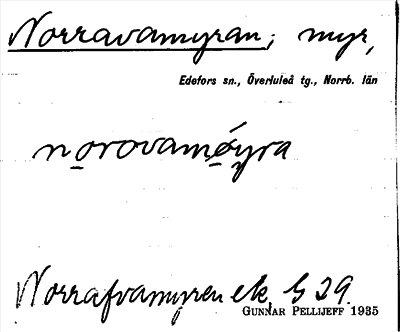 Norravamyran; myr,
Edefors sn., Överluleå tg., Norrb. län
no̲rovamǿ̲yra
Norrafvamyren ek G 29.
GUNNAR PELLIJEFF 1935